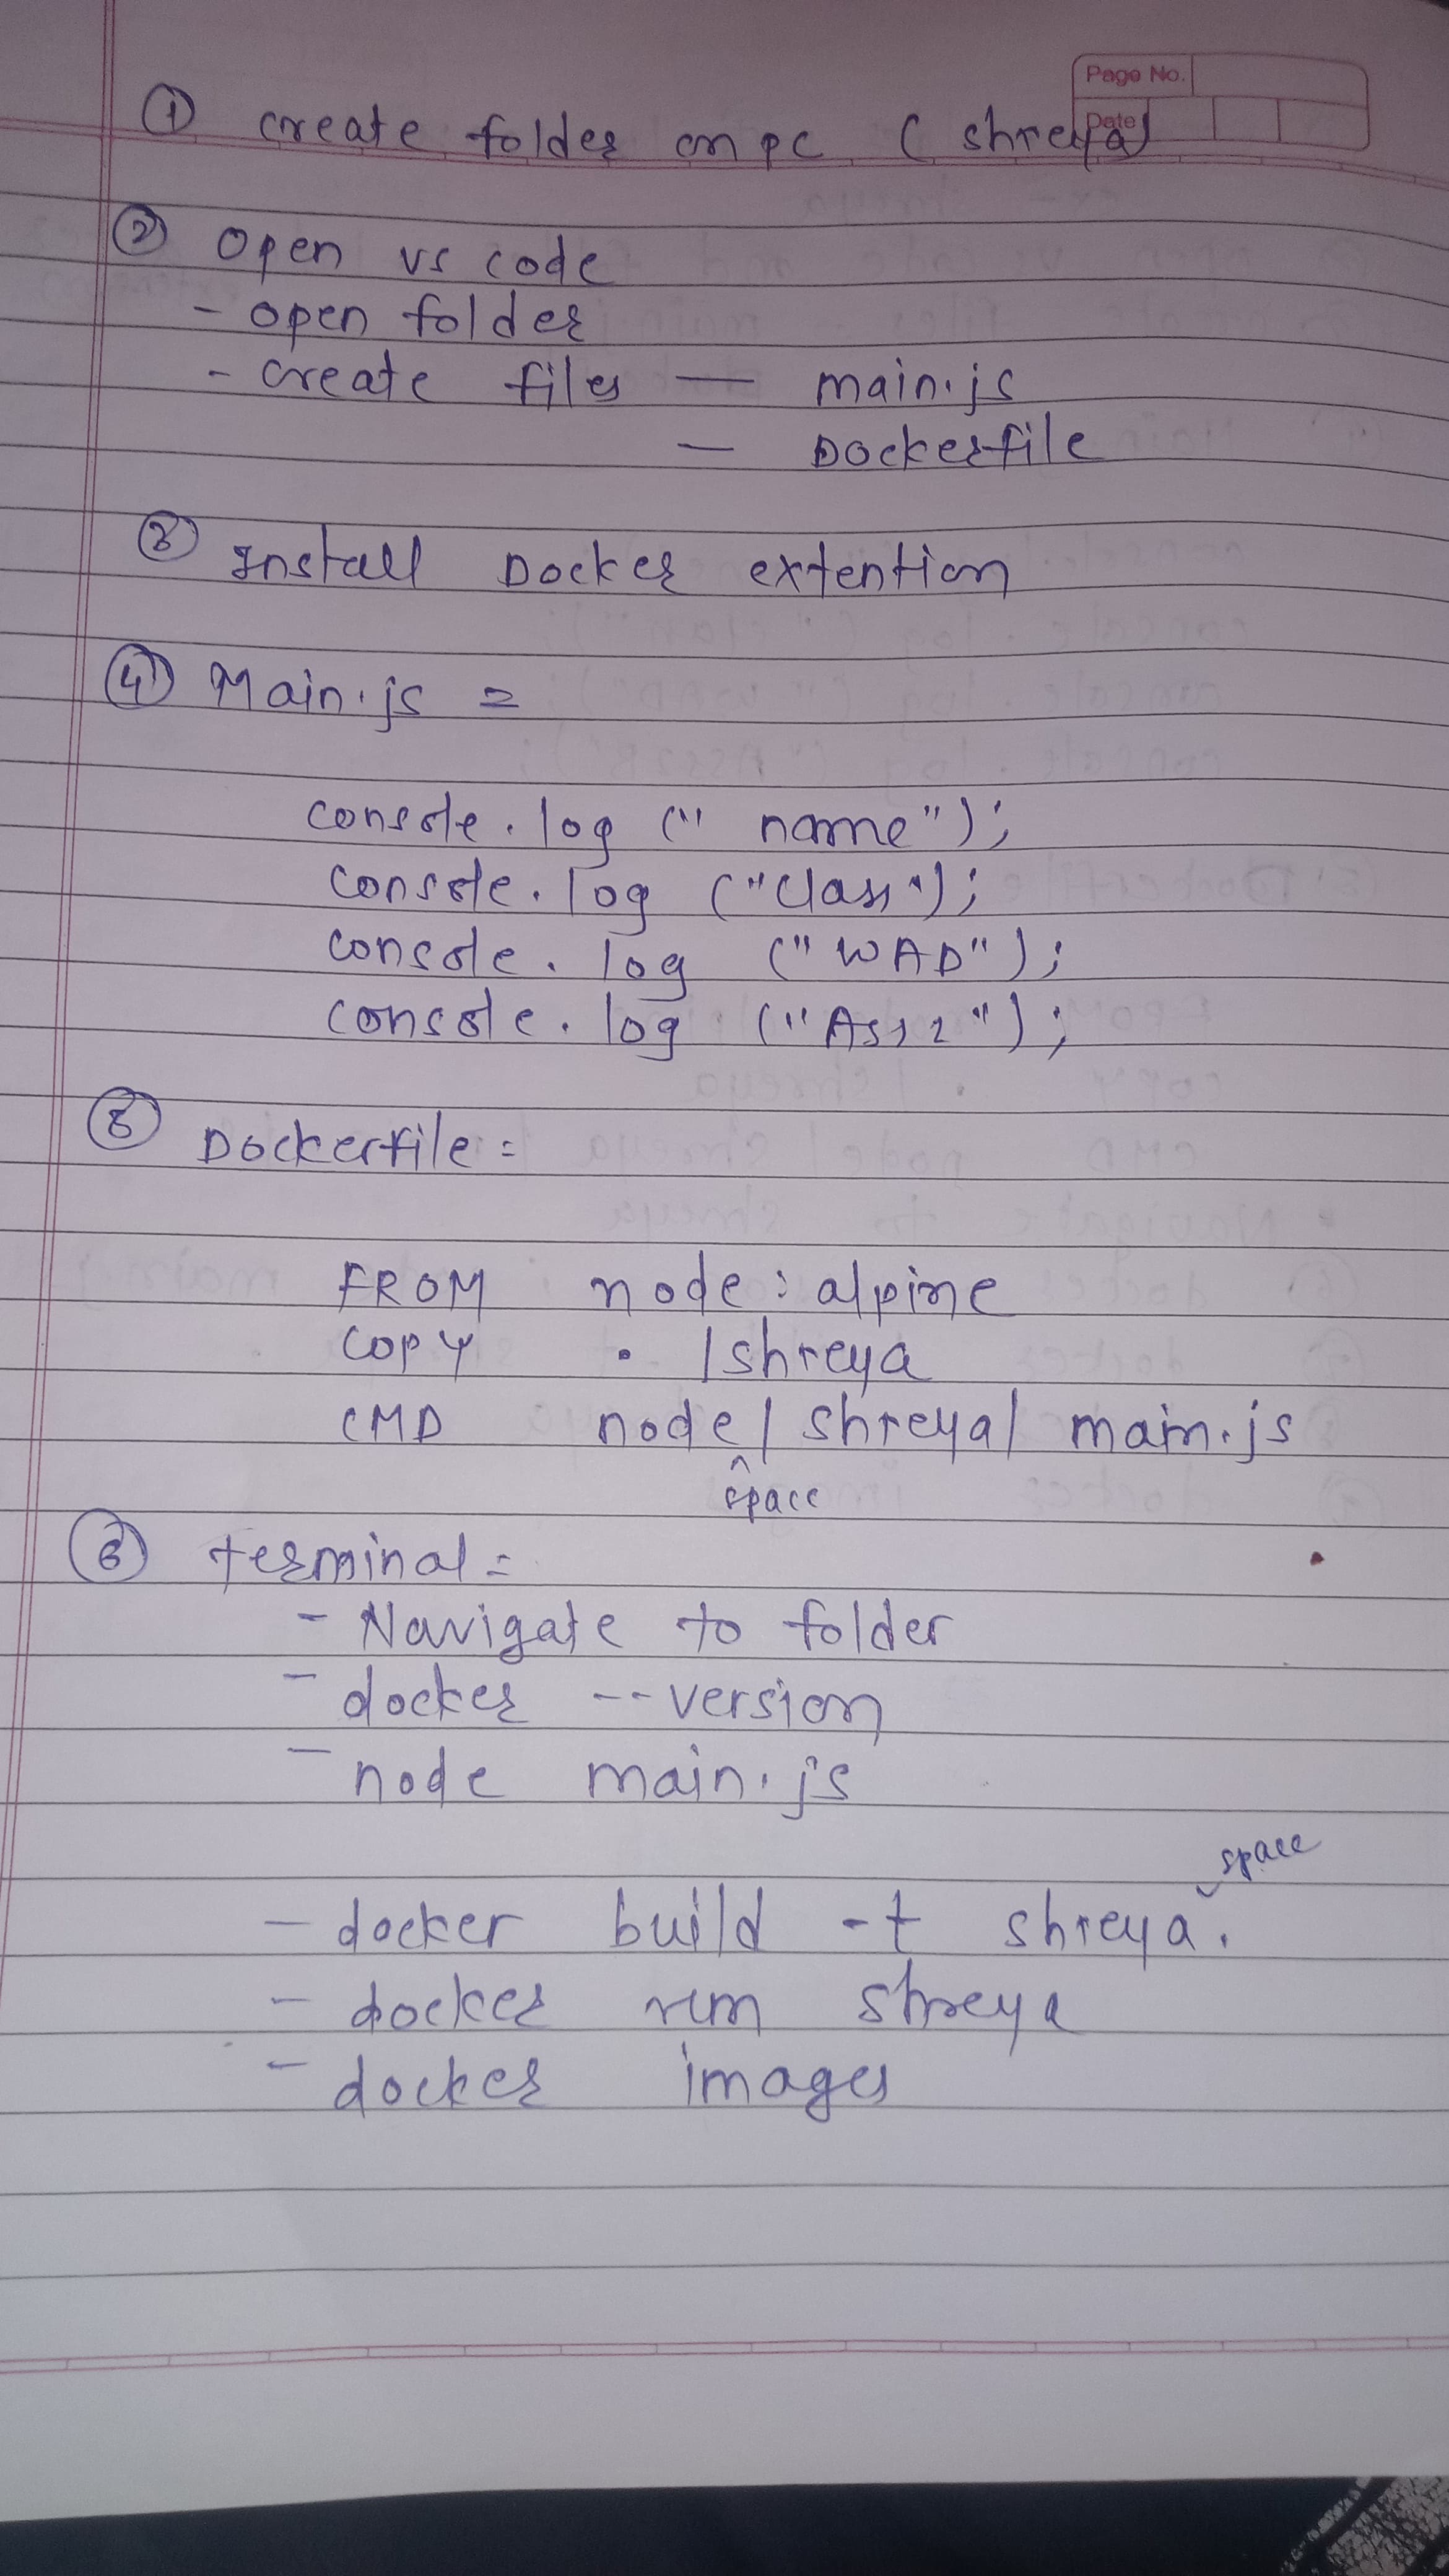 Page No.
Date
① create folder on pc ( shreya)
② Open vs code
- open folder
- create files — main.js
— Dockerfile
③ Install Docker extention
④ Main.js =
console.log (" name");
console.log ("Class");
console.log ("WAD");
console.log ("Ass2");
⑤ Dockerfile =
FROM node:alpine
COPY . /shreya
CMD node/shreya/main.js
^
space
⑥ terminal =
- Navigate to folder
- docker --version
- node main.js
space
- docker build -t shreya .
- docker run shreya
- docker images